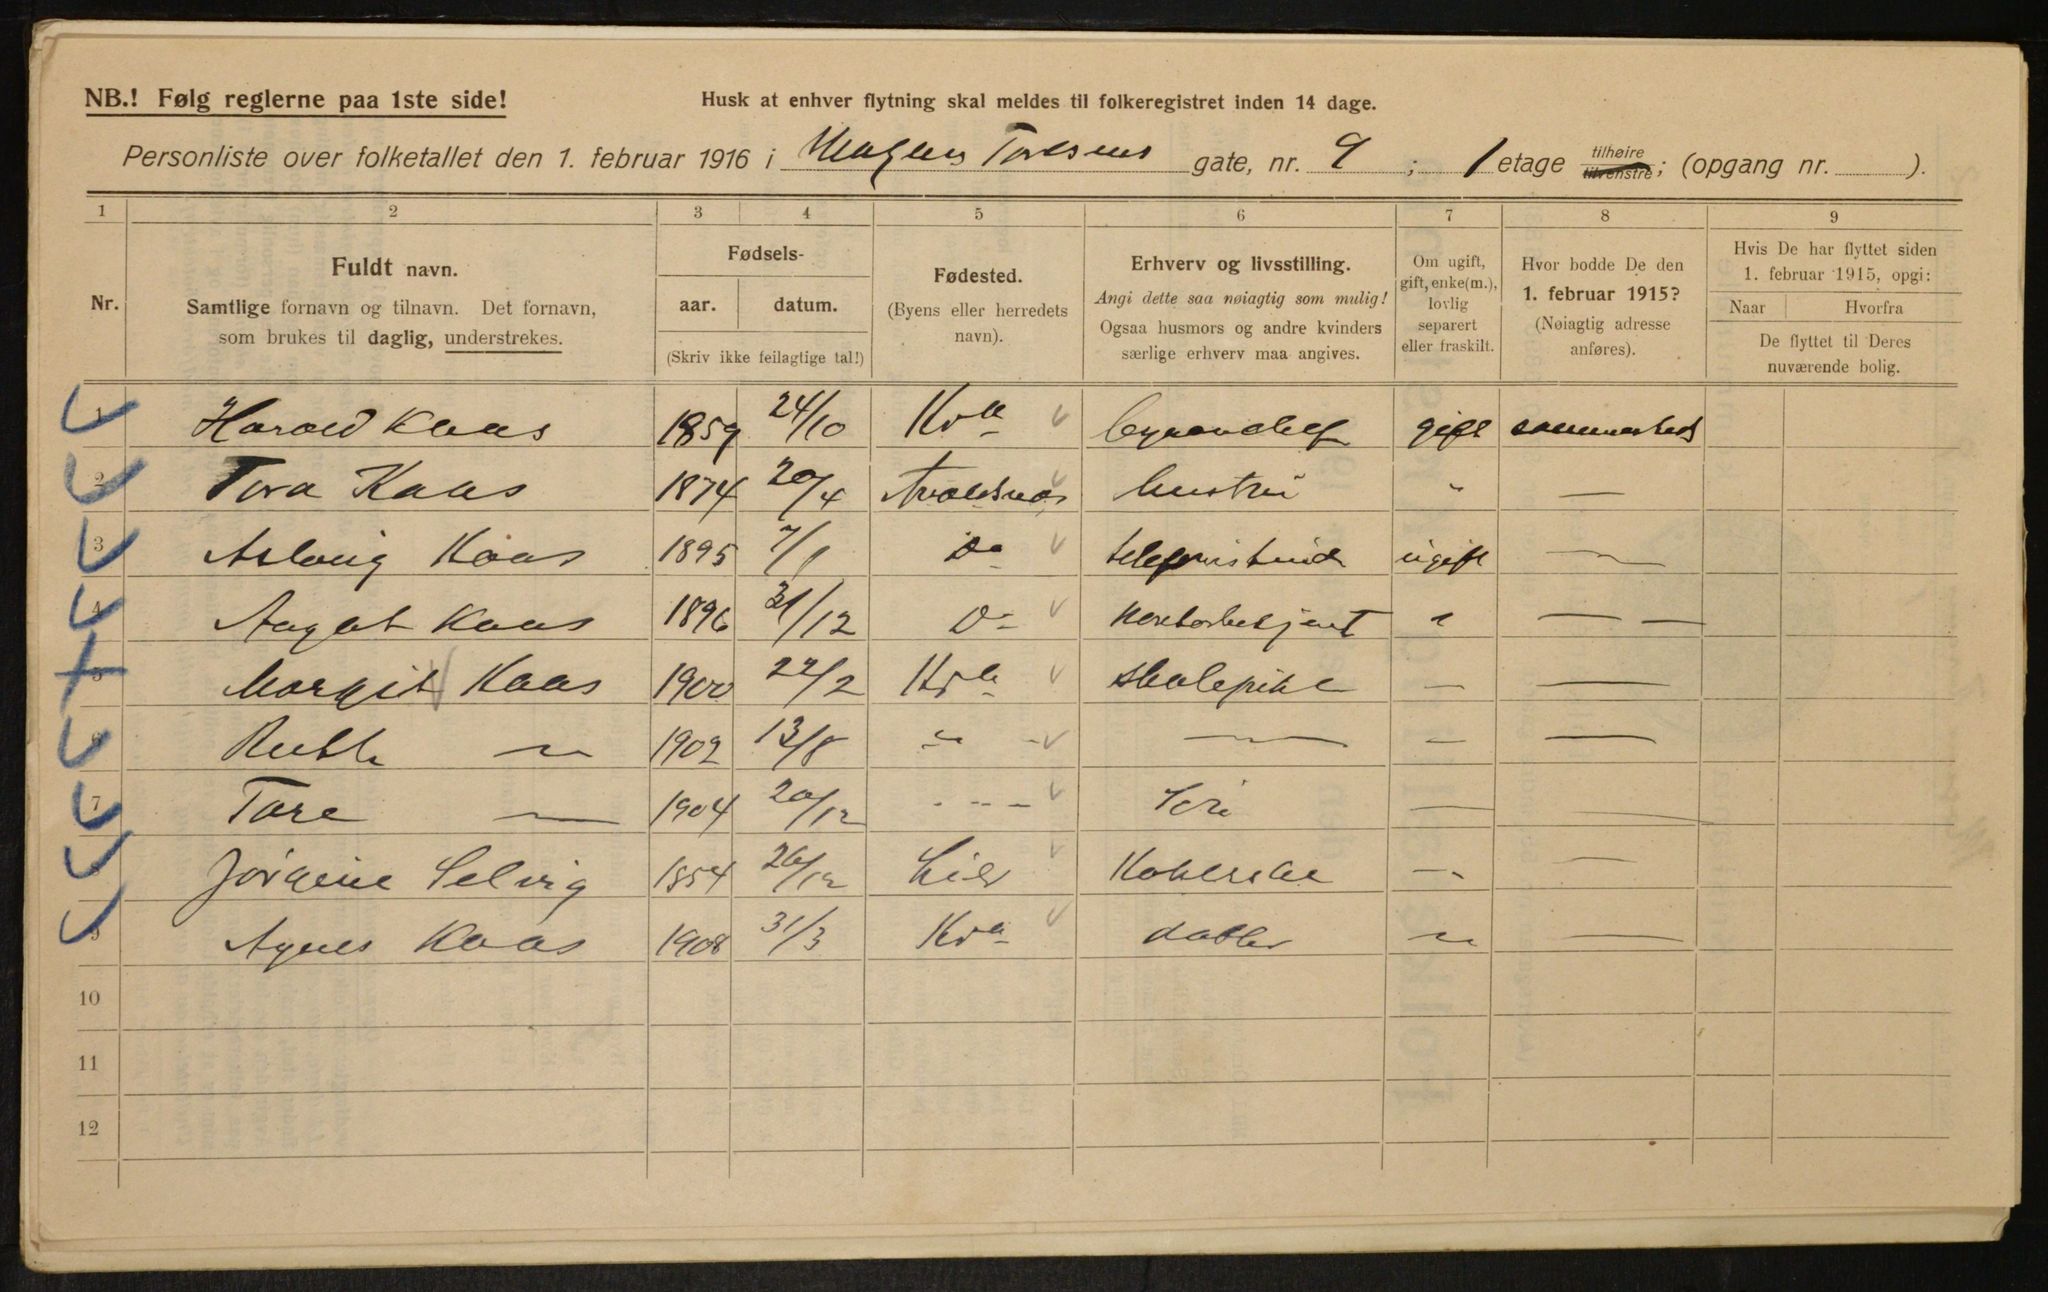 NB.! Følg reglerne paa 1ste side!
Husk at enhver flytning skal meldes til folkeregistret inden 14 dage.
Personliste over folketallet den 1. februar 1916 i Toresens gate, nr. 9 ; 1 etage tilhøire tilvenstre; (opgang nr. ).
1 2 3 4 5 6 7 8 9
Nr.
Fuldt navn.
Samtlige fornavn og tilnavn. Det fornavn,
som brukes til daglig, understrekes.
Fødsels-
aar. datum.
(Skriv ikke feilagtige tal!)
Fødested.
(Byens eller herredets
navn).
Erhverv og livsstilling.
Angi dette saa nøiagtig som mulig!
Ogsaa husmors og andre kvinders
særlige erhverv maa angives.
Om ugift,
gift, enke(m.),
lovlig
separert
eller fraskilt.
Hvor bodde De den
1. februar 1915?
(Nøiagtig adresse
anføres).
Hvis De har flyttet siden
1. februar 1915, opgi:
Naar Hvorfra
De flyttet til Deres
nuværende bolig.
1 Harald Kaas 1859 24/10 Kra gift sammesteds
2 Tora Kaas 1874 20/4 Avaldsnæs hustru " —
3 Aslaug Kaas 1895 7/1 Do telefonistinde ugift —
4 August Kaas 1896 31/12 Do kontorbetjent " — —
5 Margit Kaas 1900 22/2 Kra skolepike — —
6 Ruth — 1902 13/8 " - — — —
7 Tore — 1904 20/12 - - - — —
8 Jørgine Selvig 1854 26/12 Lier Kokkerske — —
9 Agnes Kaas 1908 31/3 Kra datter — —
10
11
12